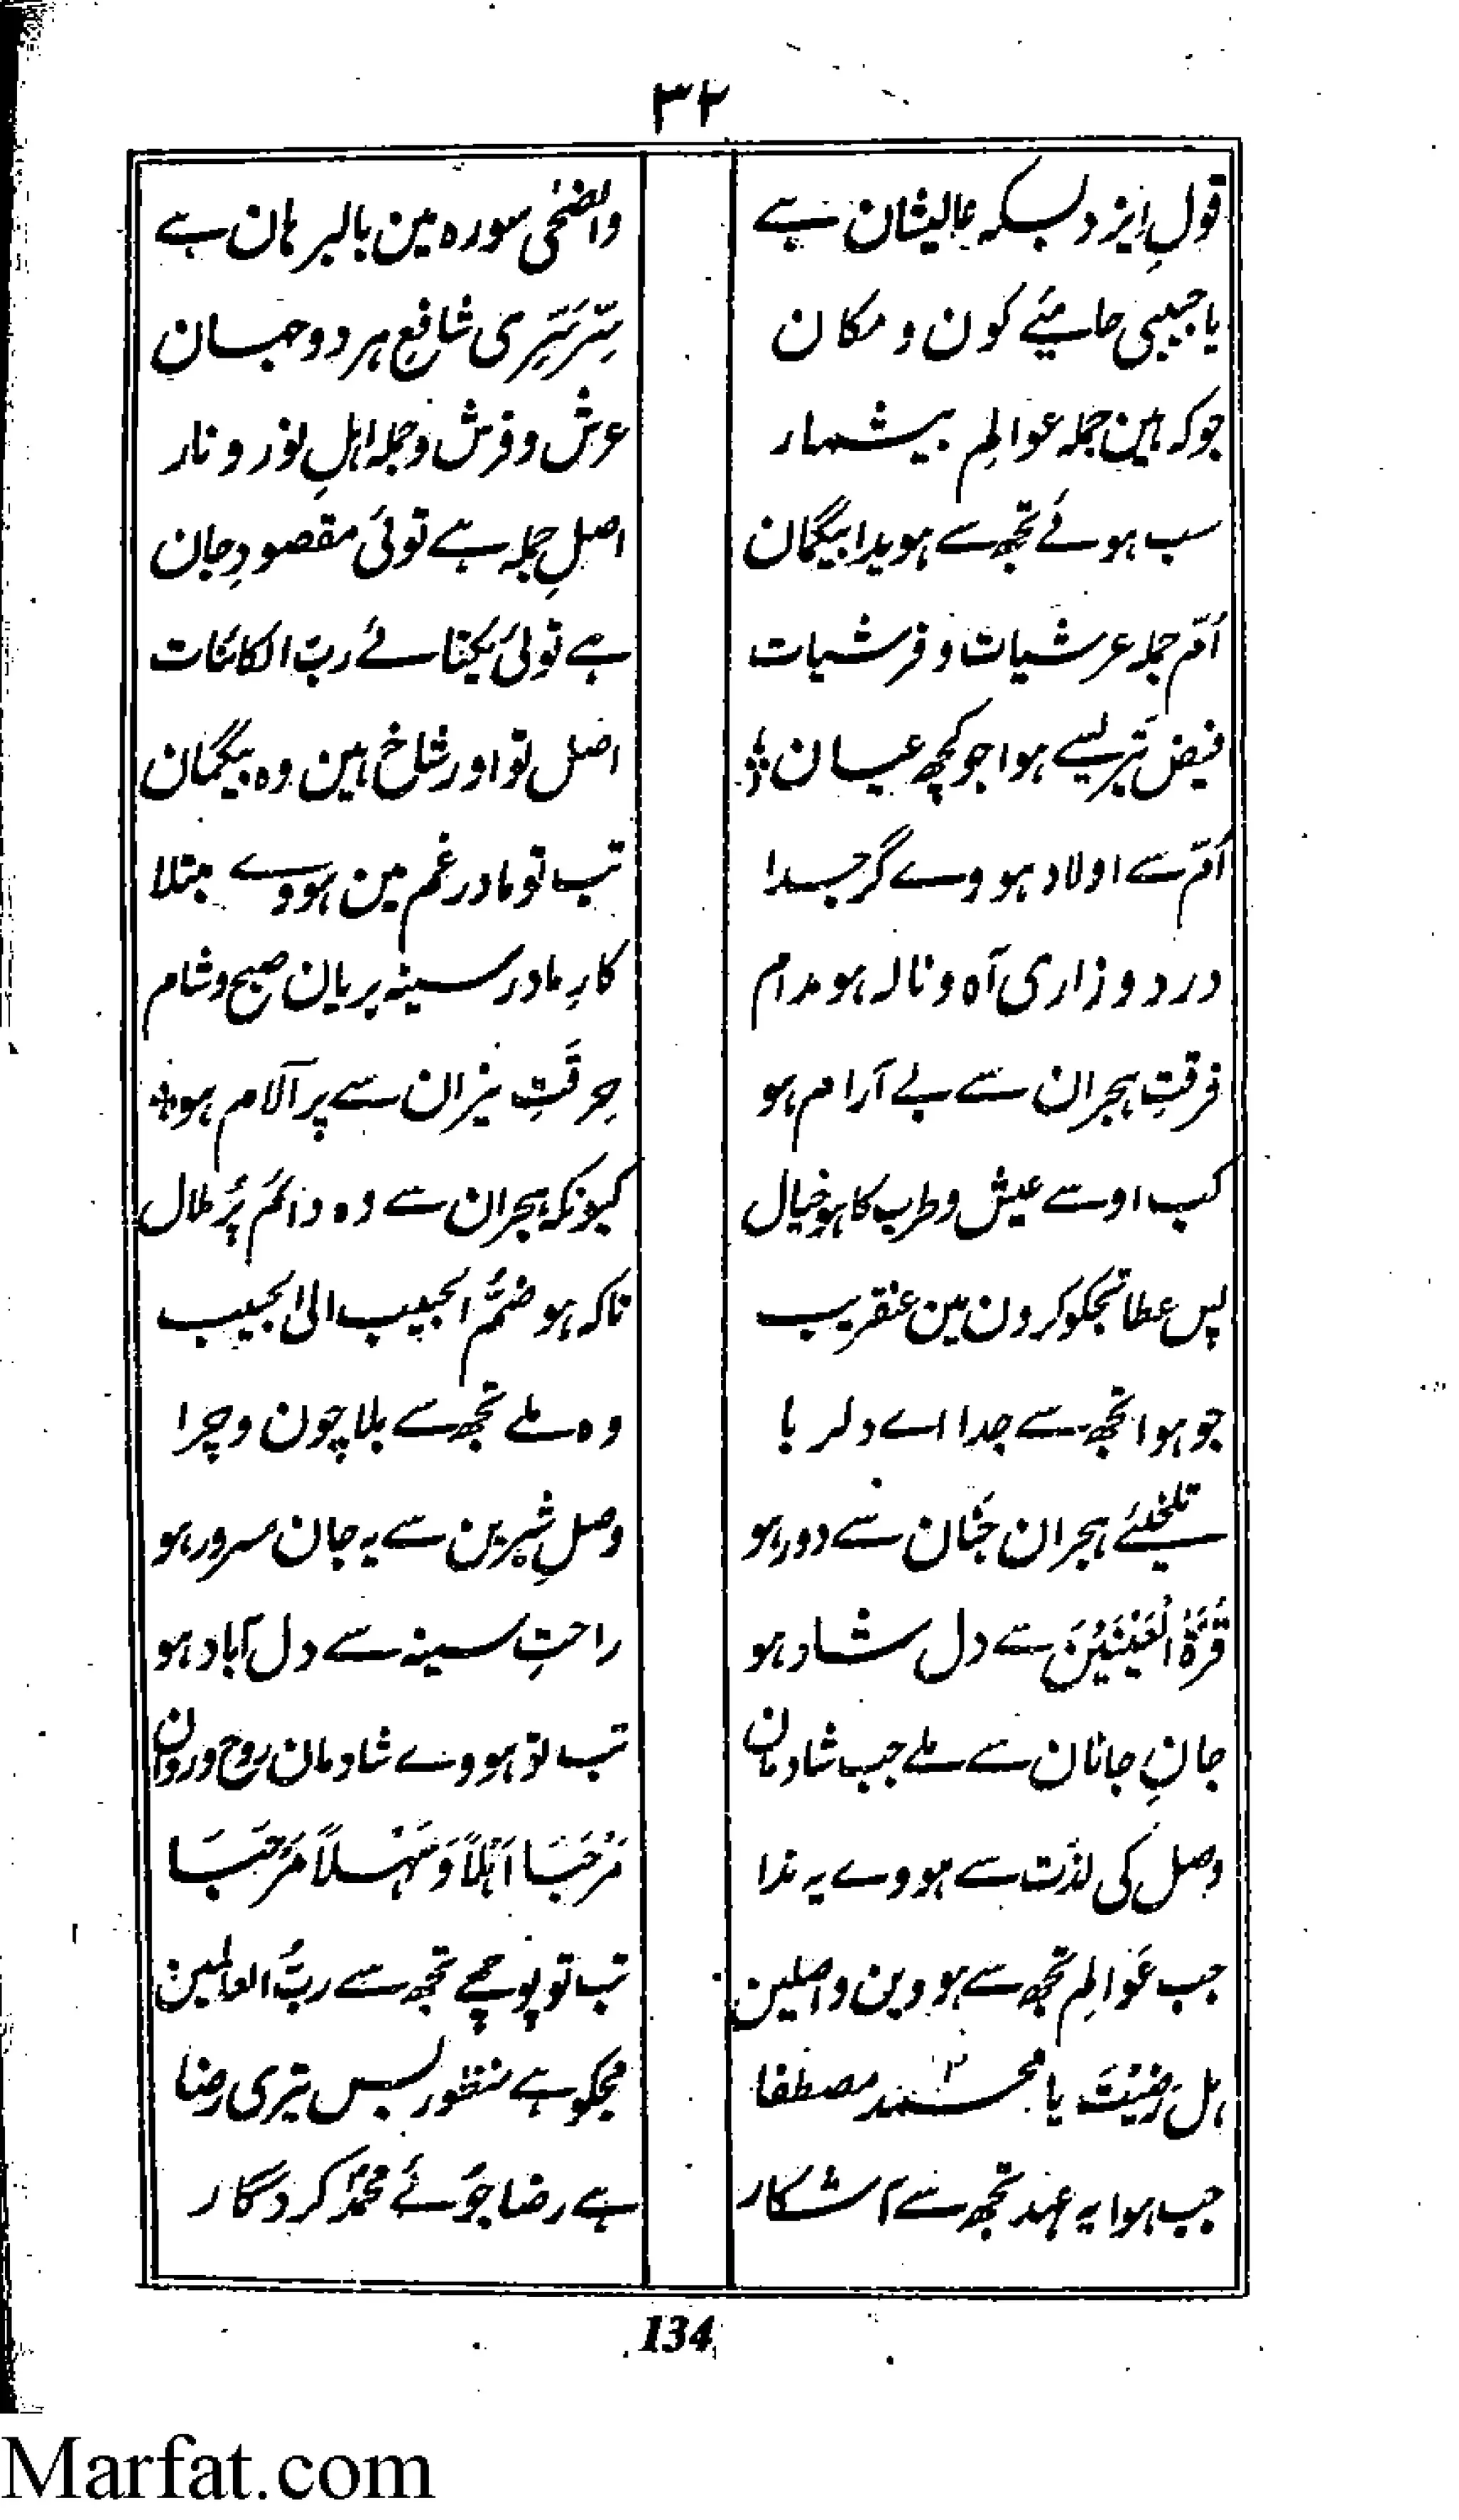 ۳۴
قولِ ایزد بسکہ عالیشان ہے والضحٰی سورہ مین بالبرہان ہے
یا حبیبی حامیٔے کون و مکان سِرِّ سَتِّرِی شافعِ ہر دو جہان
جو کہ ہین جملہ عوالِم بیشمار عرش و فرش و جملہ اہلِ نور و نار
سب ہوئے تجھ سے ہویدا بیگمان اصلِ جملہ ہے توئی مقصودِ جان
اُمِّ جملہ عرشیات و فرشیات ہے توئی یکتائے ربّ الکائنات
فیض تیریسے ہوا جو کچھ عیان اصل تو اور شاخ ہین وہ بیگمان
اُمّ سے اولاد ہووے گر جدا تب تو مادر غم مین ہووے مبتلا
درد و زاری آہ و نالہ ہو مدام کارِ مادر سینہ بریان صبح و شام
فرقتِ ہجران سے بے آرام ہو حِرقَتِ نیزان سے پر آلام ہو
کب اوسے عیش و طرب کا ہو خیال کیونکہ ہجران سے وہ دائم پُر ملال
پس عطا تجکو کرون مین عنقریب تاکہ ہو ضمُّ الحبیب الی الحبیب
جو ہوا تجھ سے جدا اے دلربا وہ ملے تجھ سے بلا چون و چرا
تلخیٔے ہجران جَنان سے دور ہو وصلِ شیرین سے یہ جان مسرور ہو
قُرَّۃُ الْعَیْنَیْنَ سے دل شاد ہو راحتِ سینہ سے دل آباد ہو
جانِ جانان سے ملے جب شادمان تب تو ہووے شادمان روح و روان
وصل کی لذت سے ہووے یہ ندا مَرْحَبَا اَہْلاً وَّ سَہْلاً مَرْحَبَا
جب عَوالِم تجھ سے ہووین واصلین تب تو پوچھے تجھ سے ربُّ العالمین
ہل رَضِیْتَ یا محمد مصطفا مجکو ہے منظور بس تیری رضا
جب ہوا یہ عہد تجھ سے آشکار ہے رضا جوئے محمدؐ کردگار
134
Marfat.com